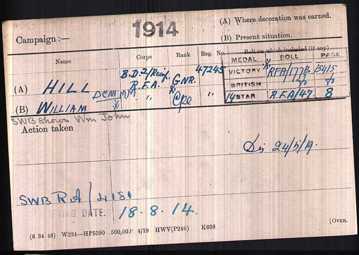 1914
(A) Where decoration was earned.
(B) Present situation.
Campaign :—
Name Corps Rank Reg. No. Roll on which included (if any)
MEDAL ROLL PAGE
(A) HILL R.F.A. GNR. 47245 VICTORY
(B) WILLIAM DCM MM " Cpl " BRITISH " "
14 STAR R.F.A/47. 8
SWB shows Wm John
Action taken
Dis 24/5/19.
DATE. 18.8.14.
(6 34 46) W234—HP5590 500,000 4/19 HWV(P240) K608
[Over.